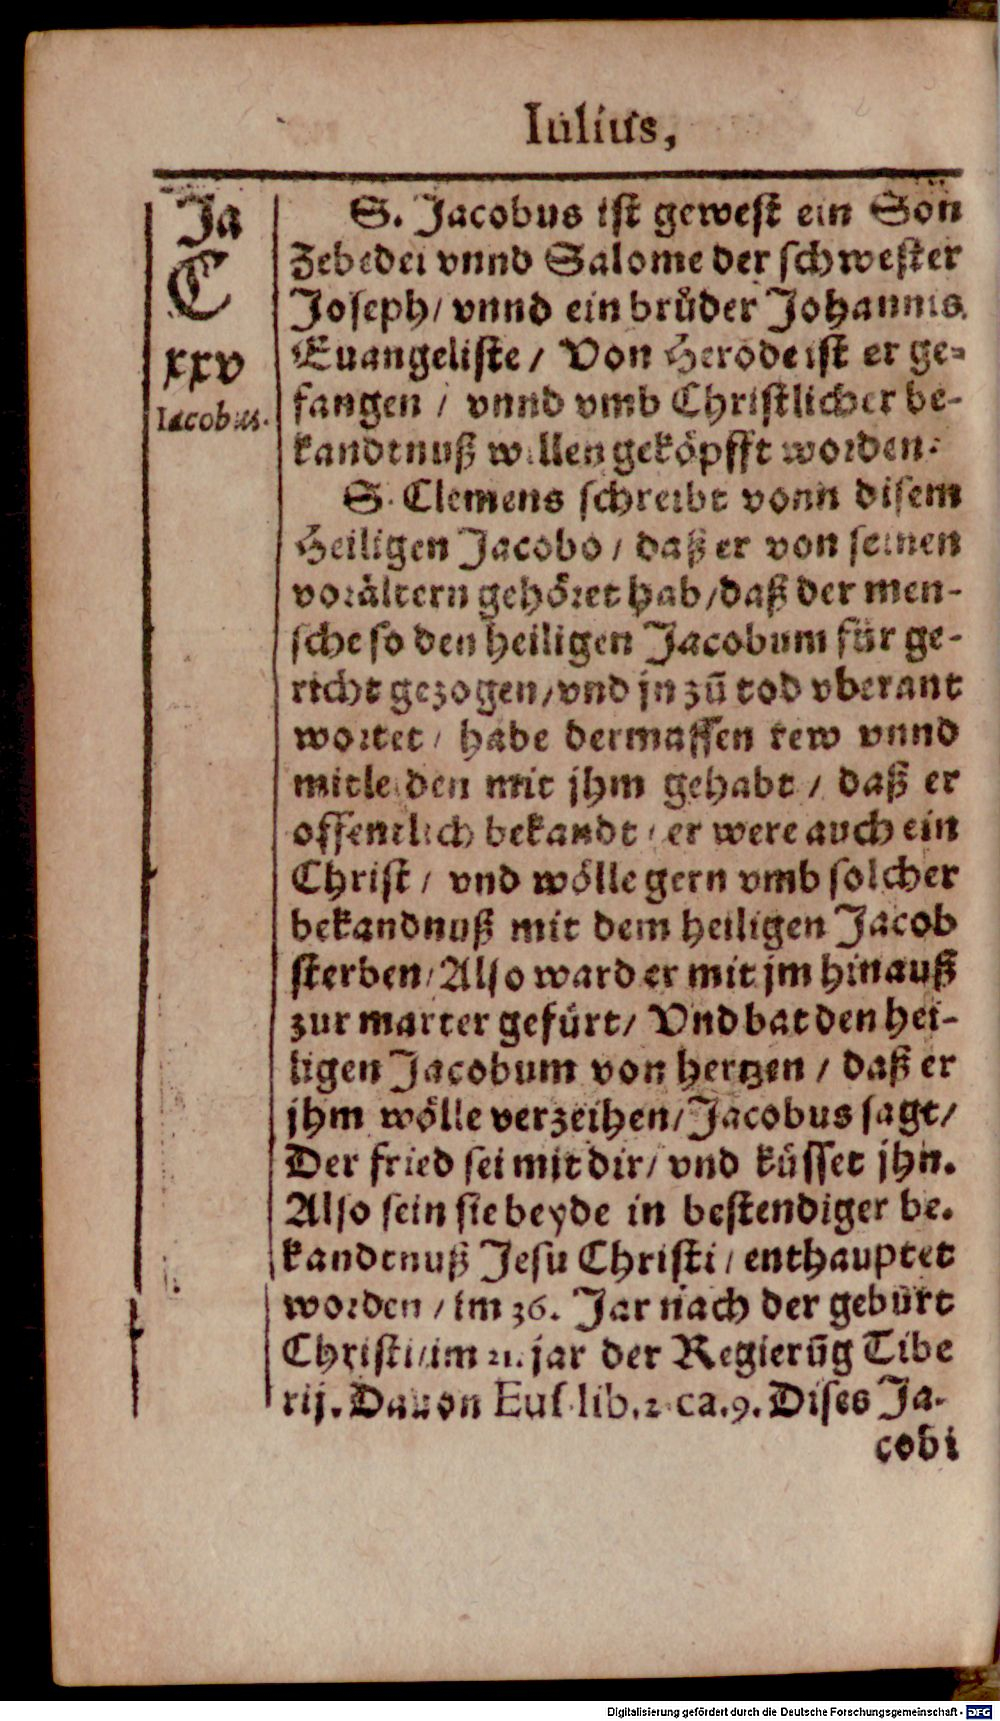 Iulius,
Ja
C
xxv
Iacobus.
S. Jacobus ist gewest ein Son
Zebedei vnnd Salome der schwester
Joseph/ vnnd ein brůder Johannis
Euangeliste / Von Herode ist er ge=
fangen / vnnd vmb Christlicher be-
kandtnuß willen geköpfft worden.
S. Clemens schreibt vonn disem
Heiligen Jacobo / daß er von seinen
vorältern gehöret hab/daß der men-
sche so den heiligen Jacobum für ge-
richt gezogen/vnd jn zů tod vberant
wortet / habe dermassen rew vnnd
mitleiden mit jhm gehabt / daß er
offentlich bekandt / er were auch ein
Christ / vnd wölle gern vmb solcher
bekandnuß mit dem heiligen Jacob
sterben/Also ward er mit jm hinauß
zur marter gefürt/ Vnd bat den hei-
ligen Jacobum von hertzen / daß er
jhm wölle verzeihen/Jacobus sagt/
Der fried sei mit dir/ vnd küsset jhn.
Also sein sie beyde in bestendiger be-
kandtnuß Jesu Christi / enthauptet
worden / im 36. Jar nach der geburt
Christi/im 21. jar der Regierūg Tibe
rij. Dauon Eus. lib. 2. ca. 9. Dises Ja-
cobi
Digitalisierung gefördert durch die Deutsche Forschungsgemeinschaft - DFG